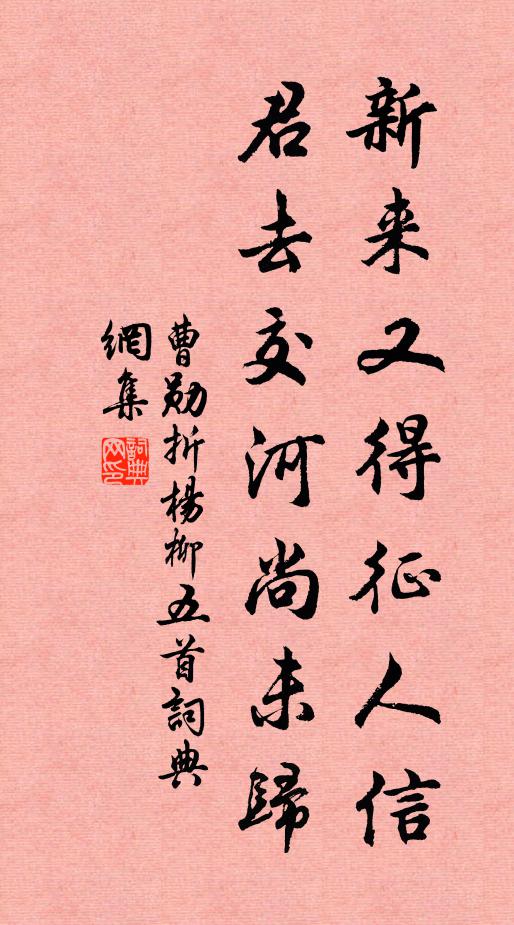 新来又得征人信
君去交河尚未歸
曹勛折楊柳五首詞典
網集
詞典網印